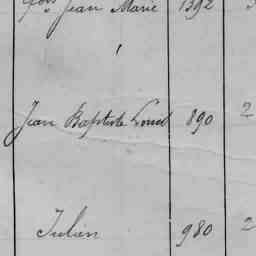 fois Jean Marie 1392
Jean Baptiste Louis 890 2
Julien 980 2